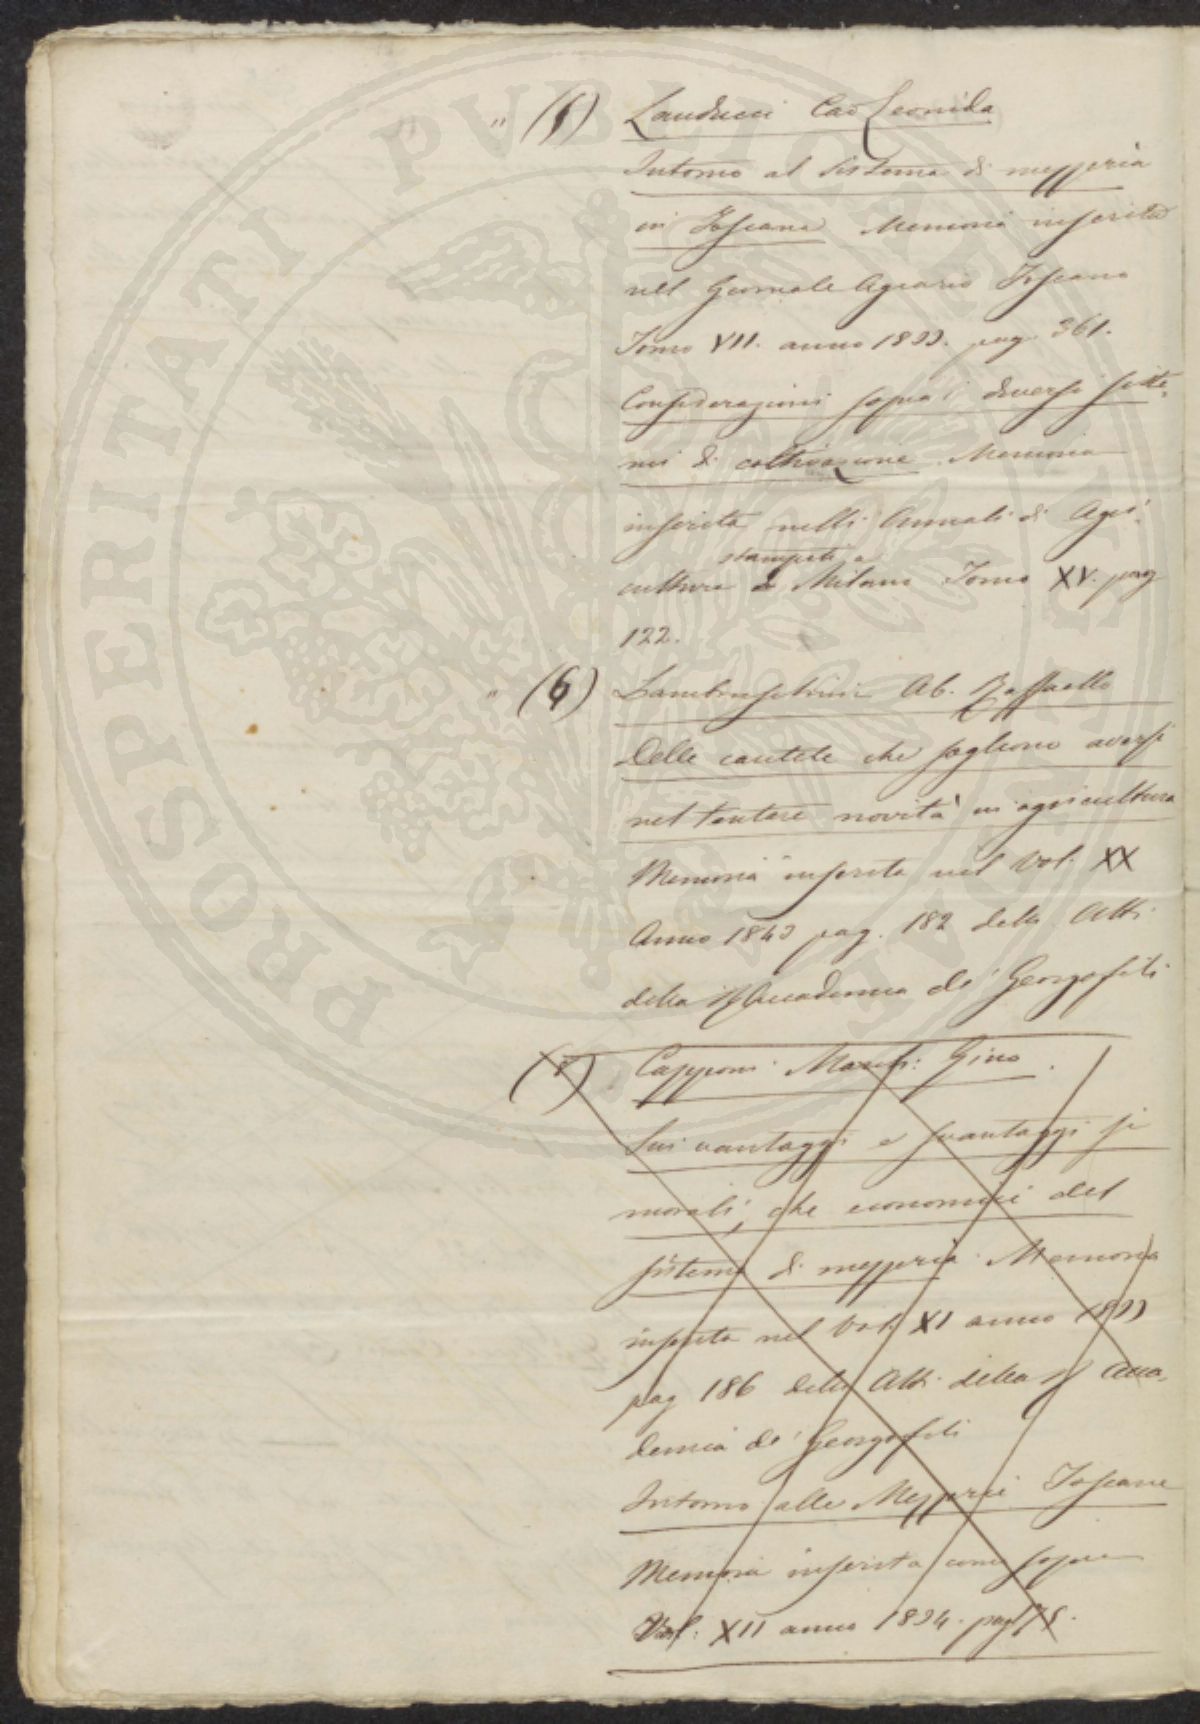 " (5) Landucci Cav Leonida
Intorno al sistema di mezzeria
in Toscana Memoria inserita
nel Giornale Agrario Toscano
Tomo VII. anno 1833. pag. 361.
Considerazioni sopra i diversi siste-
mi di coltivazione Memoria
inserita nelli Annali di Agri-
stampati a
cultura Milano Tomo XV. pag
122.
" (6) Lambruschini Ab. Raffaello
Delle cautele che sogliono aversi
nel tentare novità in agricultura
Memoria inserita nel Vol. XX
Anno 1843 pag. 182 delli Atti
della Accademia de' Georgofili
Capponi March: Gino.
Sui vantaggi e svantaggi si
morali, che economici del
sistema di mezzeria. Memoria
inserita nel Vol. XI anno 1833
pag 186 delli Atti della Acca-
demia de' Georgofili
Intorno alle Mezzerie Toscane
Memoria inserita come sopra
Vol: XII anno 1834. pag 175.
PROSPERITATI PVBLICAE AVGENDAE